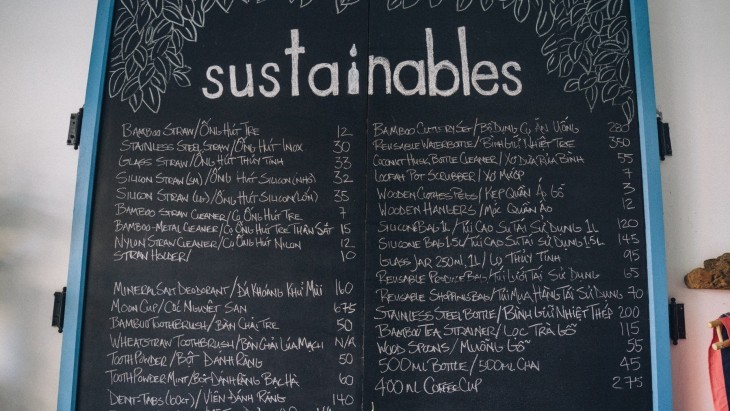 sustainables
Bamboo Straw/Ống Hút Tre 12
Stainless Steel Straw/Ống Hút Inox 30
Glass Straw/Ống Hút Thủy Tinh 33
Silicon Straw (sm)/Ống Hút Silicon (nhỏ) 32
Silicon Straw (lg)/Ống Hút Silicon (lớn) 35
Bamboo Straw Cleaner/Cọ Ống Hút Tre 7
Bamboo-Metal Cleaner/Cọ Ống Hút Tre Thân Sắt 15
Nylon Straw Cleaner/Cọ Ống Hút Nilon 12
Straw Holder/ 10
Mineral Salt Deodorant/Đá Khoáng Khử Mùi 160
Moon Cup/Cốc Nguyệt San 675
Bamboo Toothbrush/Bàn Chải Tre 50
Wheatstraw Toothbrush/Bàn Chải Lúa Mạch N/A
Tooth Powder/Bột Đánh Răng 50
Tooth Powder Mint/Bột Đánh Răng Bạc Hà 60
Dent-Tabs (60ct)/Viên Đánh Răng 140
Bamboo Cutlery Set/Bộ Dụng Cụ Ăn Uống 280
Reusable Waterbottle/Bình Giữ Nhiệt Tre 350
Coconut Husk Bottle Cleaner/Xơ Dừa Rửa Bình 55
Loofah Pot Scrubber/Xơ Mướp 7
Wooden Clothes Pegs/Kẹp Quần Áo Gỗ 3
Wooden Hangers/Móc Quần Áo 12
Silicone Bag 1L/Túi Cao Su Tái Sử Dụng 1L 120
Silicone Bag 1.5L/Túi Cao Su Tái Sử Dụng 1.5L 145
Glass Jar 250ml, 1L/Lọ Thủy Tinh 95
Reusable Produce Bag/Túi Lưới Tái Sử Dụng 65
Reusable Shopping Bag/Túi Mua Hàng Tái Sử Dụng 70
Stainless Steel Bottle/Bình Giữ Nhiệt Thép 200
Bamboo Tea Strainer/Lọc Trà Gỗ 115
Wood Spoons/Muỗng Gỗ 55
500ml Bottle/500ml Chai 45
400ml Coffee Cup 275